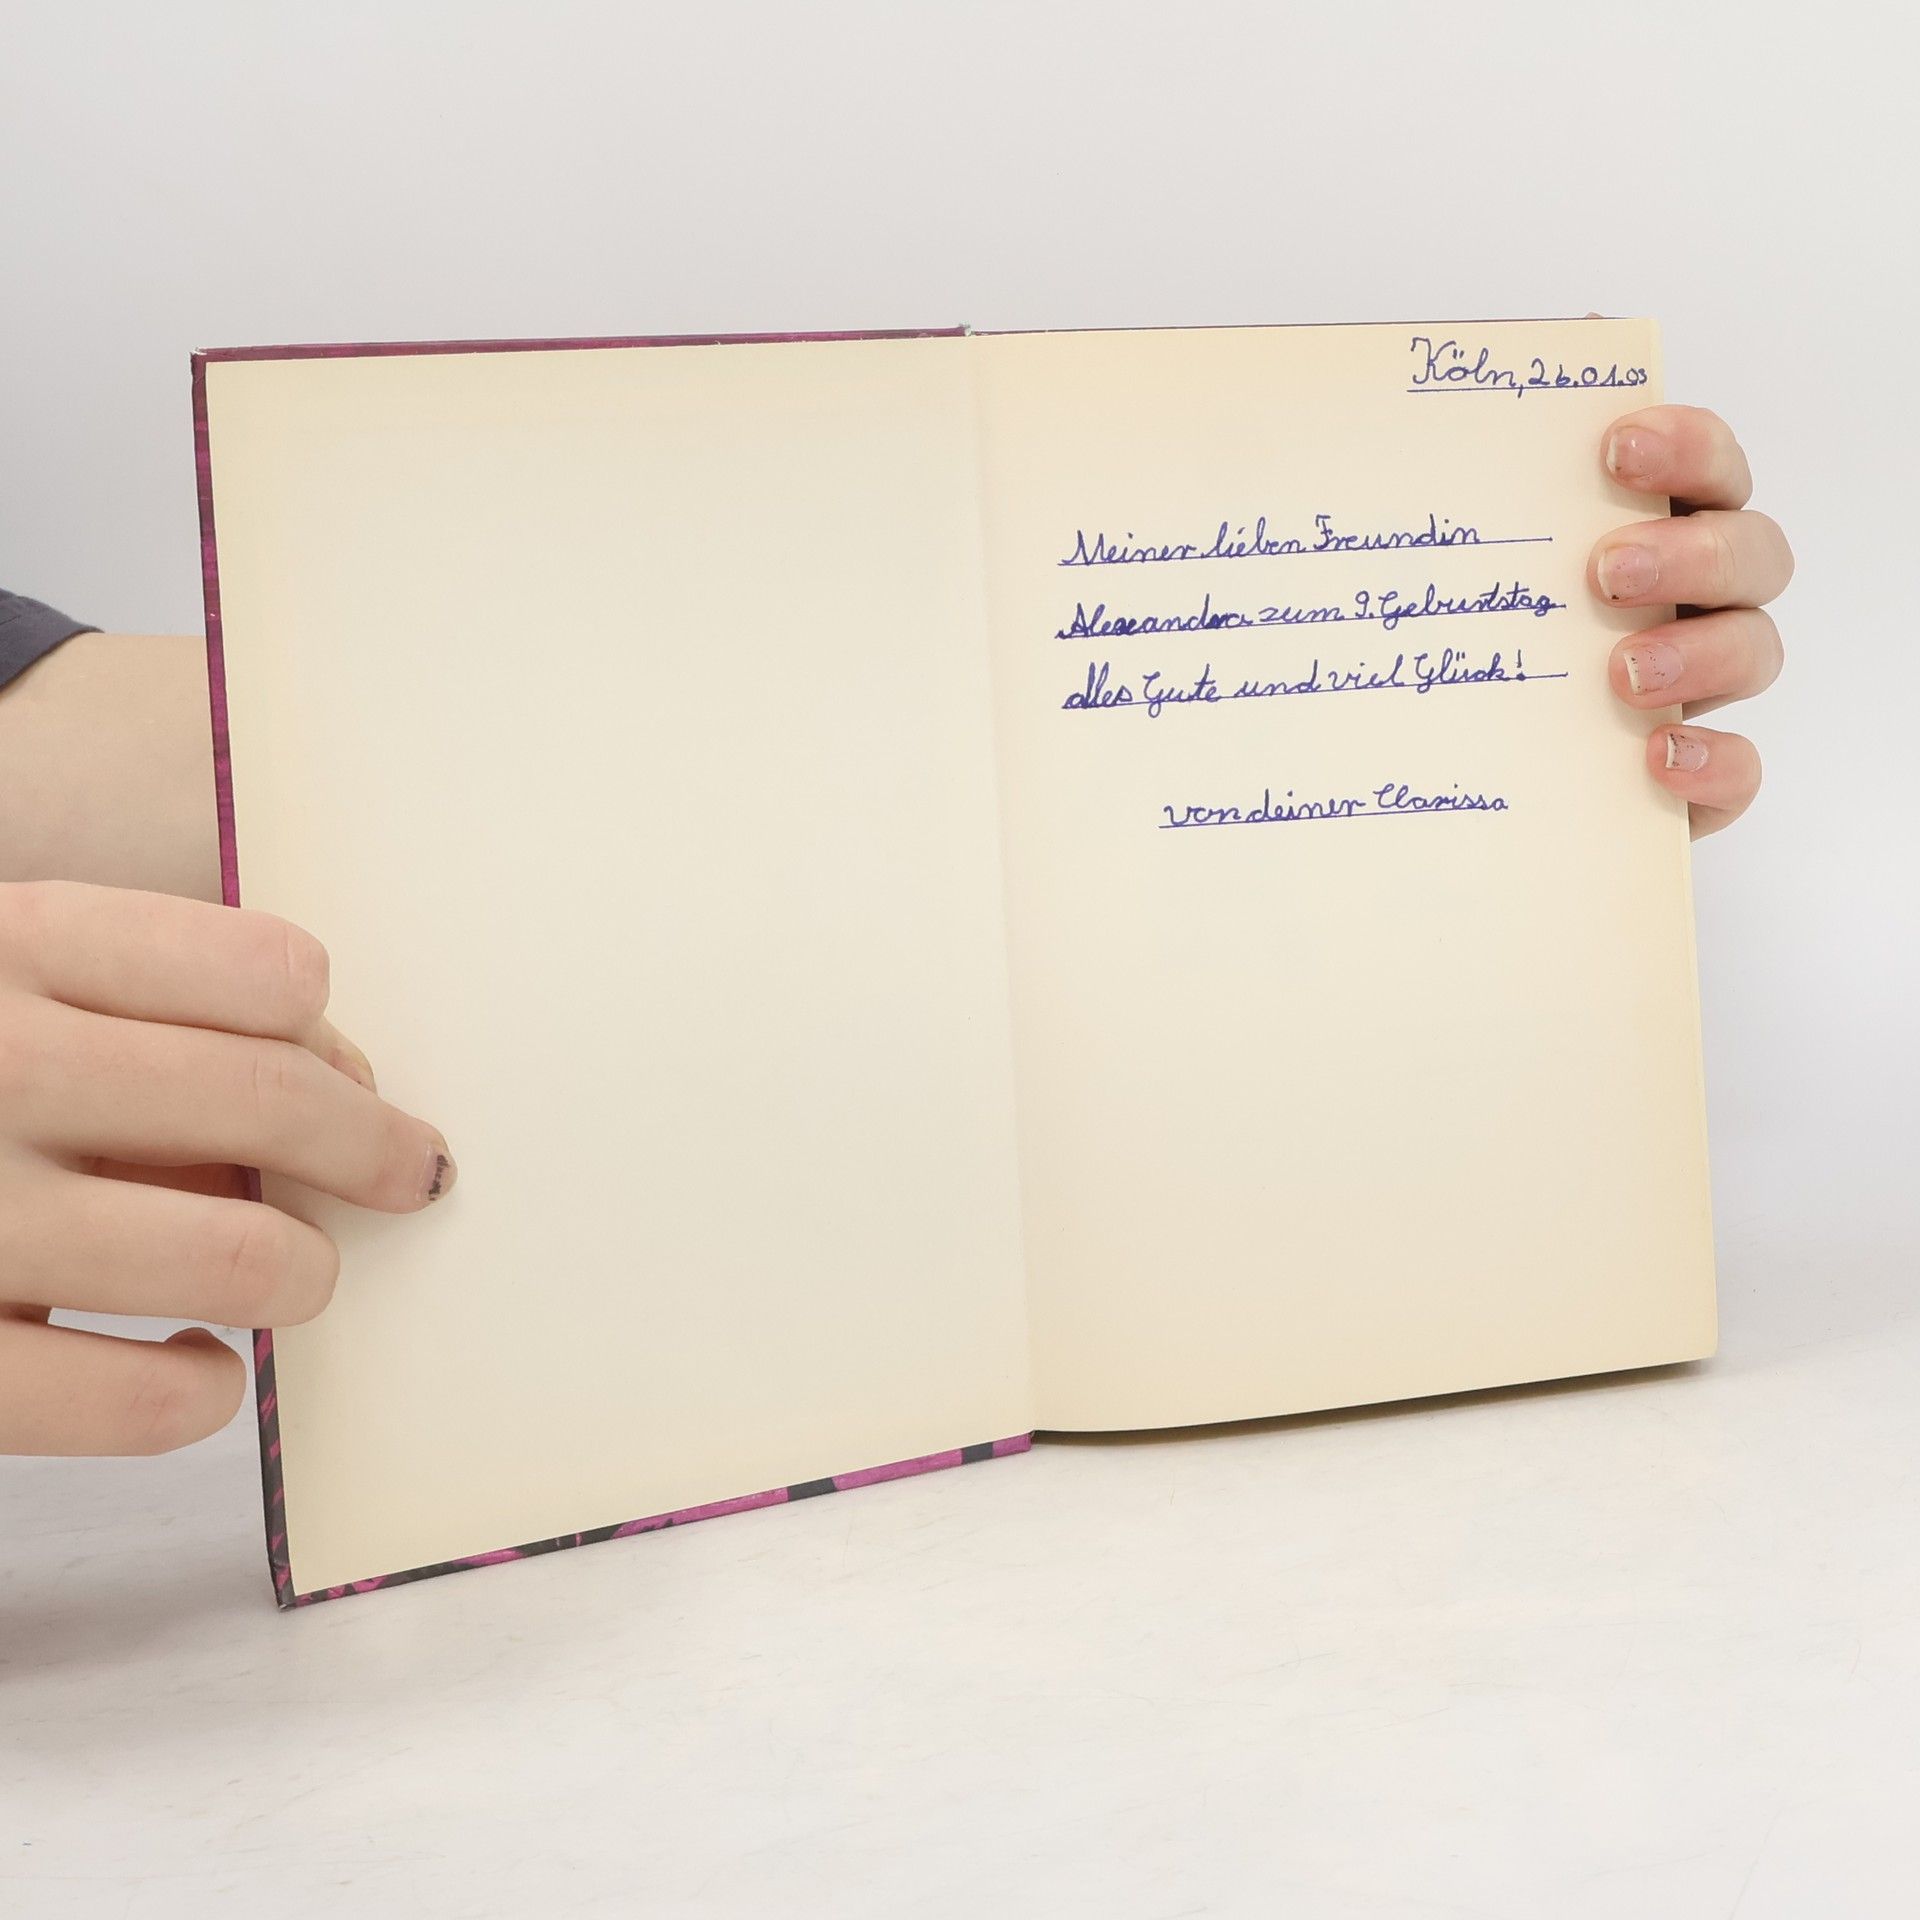 Köln, 26.01.03
Meiner lieben Freundin
Alexandra zum 9. Geburtstag
alles Gute und viel Glück!
von deiner Clarissa